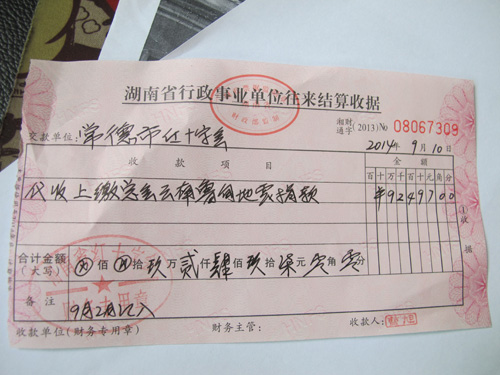 湖南省行政事业单位往来结算收据
湘财通字(2013)No 08067309
交款单位:常德市红十字会
2014年9月10日
收款项目 金额
百十万千百十元角分
代收上缴总会云南鲁甸地震捐款 ¥9249700
合计金额(大写) ⊗佰⊗拾玖万贰仟肆佰玖拾柒元零角零分
备注 9月2日汇入
收款单位(财务专用章) 财务主管: 收款人:
②收据